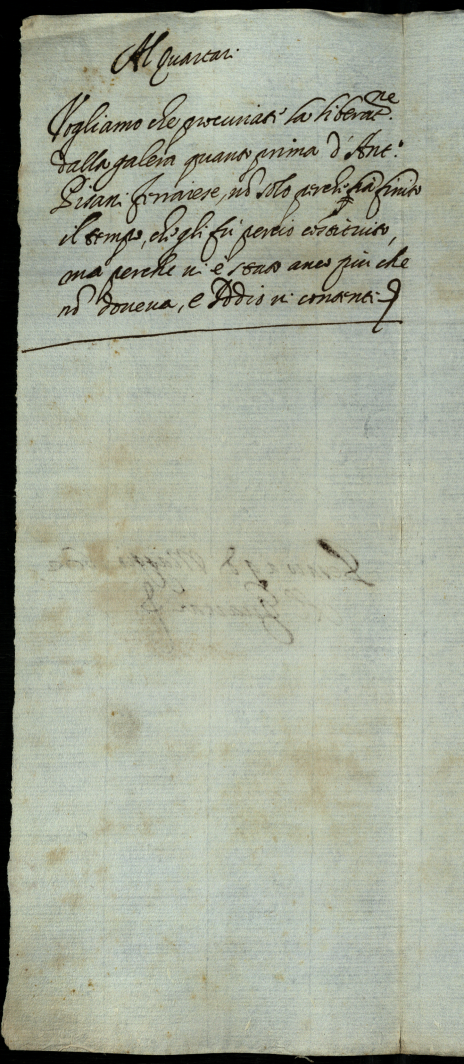 Al Quartari
Vogliamo che procuriate la liberatne.
dalla galera quanto prima d'Anto.
Pisani ferrarese, nõ solo perche ha finito
il tempo, che gli fù percio costituito,
ma perche vi è stato anco piu che
nõ doueua, e Dio vi contenti